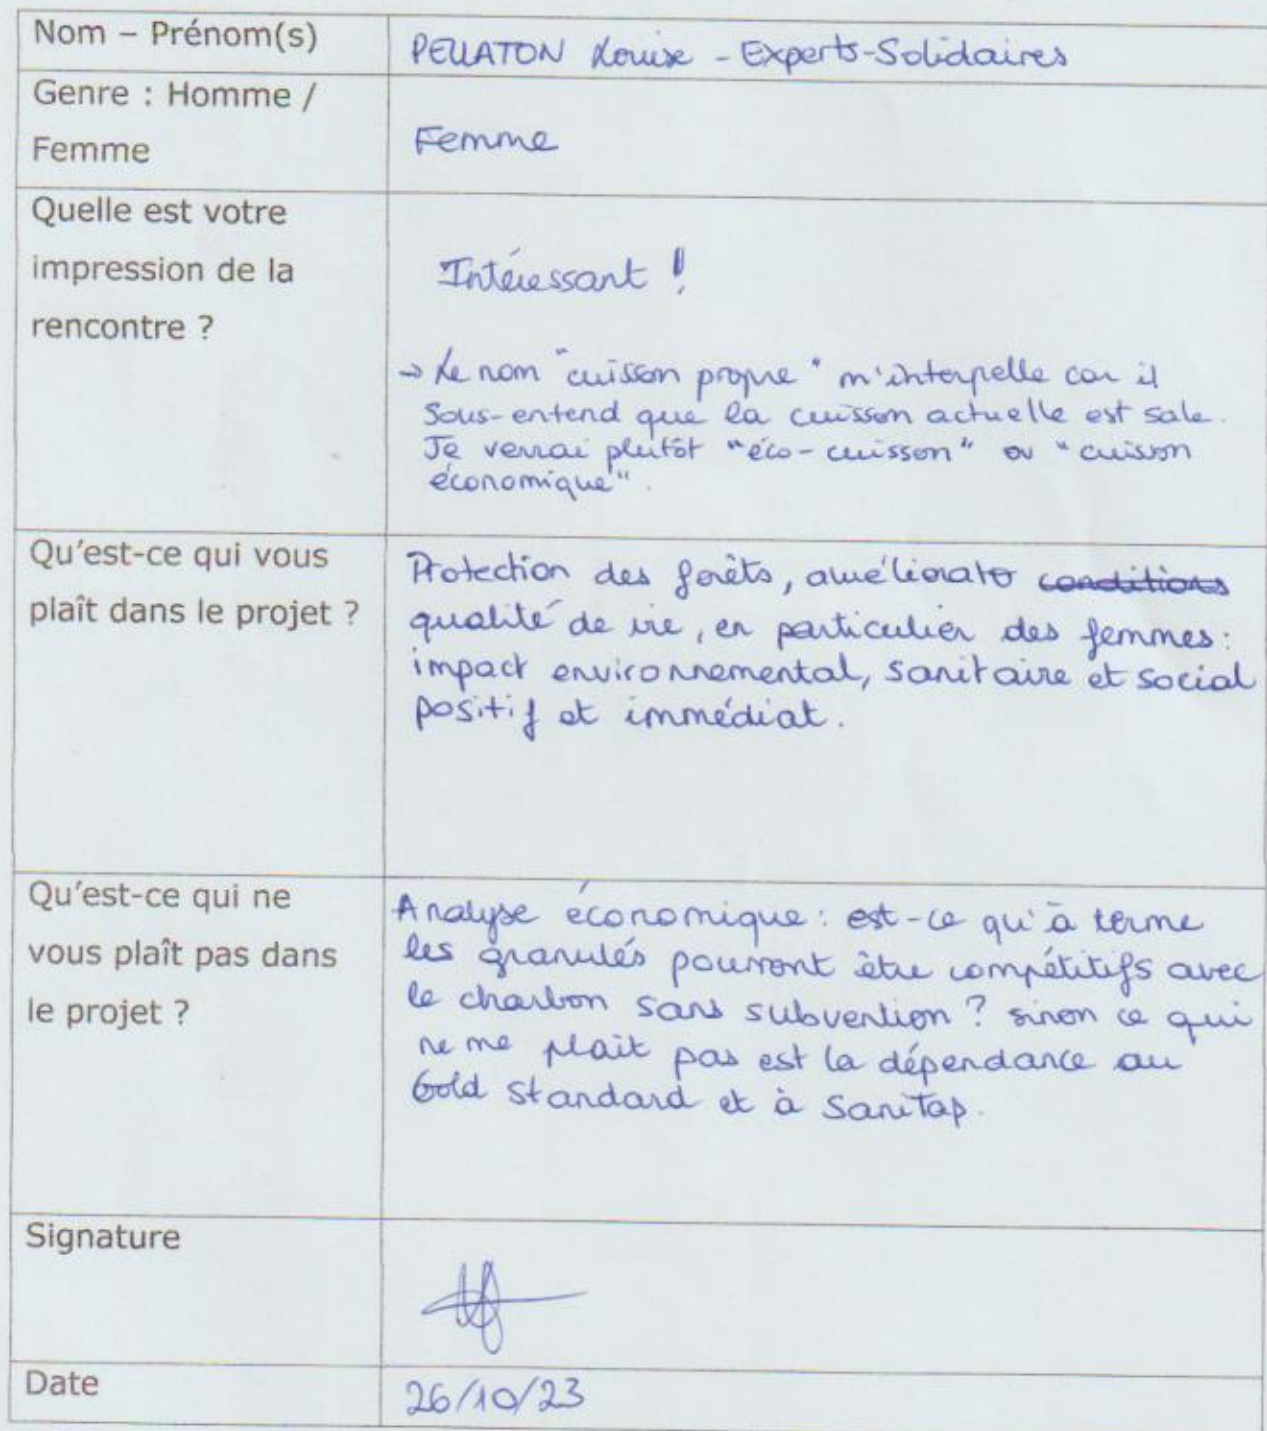 Nom – Prénom(s)
PELLATON Louise - Experts-Solidaires
Genre : Homme /
Femme
Femme
Quelle est votre
impression de la
rencontre ?
Intéressant !
→ Le nom "cuisson propre" m'interpelle car il
sous-entend que la cuisson actuelle est sale.
Je verrai plutôt "éco-cuisson" ou "cuisson
économique".
Qu'est-ce qui vous
plaît dans le projet ?
Protection des forêts, amélioratº conditions
qualité de vie, en particulier des femmes :
impact environnemental, sanitaire et social
positif et immédiat.
Qu'est-ce qui ne
vous plaît pas dans
le projet ?
Analyse économique : est-ce qu'à terme
les granulés pourront être compétitifs avec
le charbon sans subvention ? sinon ce qui
ne me plait pas est la dépendance au
Gold Standard et à SaniTap.
Signature
Date
26/10/23